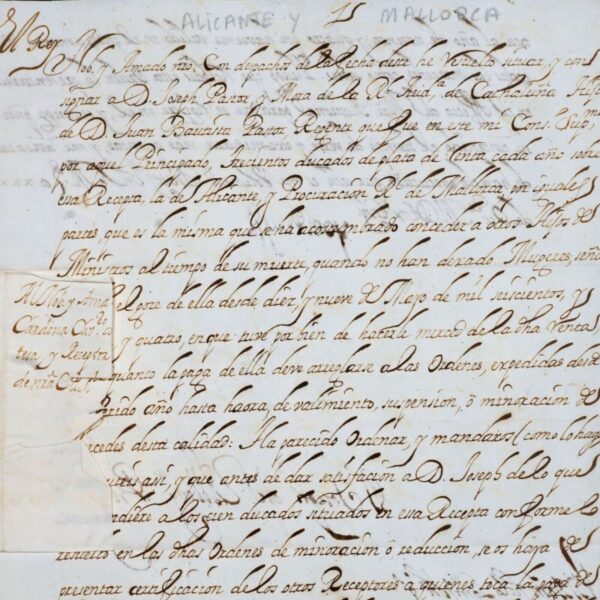 ALICANTE Y MALLORCA
El Rey
Nob. y Amado nro, Con despacho de la fecha deste he resuelto situar, y con
signar a D. Joseph Pastor, y Mora de la Rl Aud.a de Cathaluña Hijo
de D. Juan Bautista Pastor, Regente que fue en este mi Cons. Sup.mo
por aquel Principado, trecientos ducados de plata de renta cada año sobre
essa Recepta, la de Alicante, y Procuracion Rl de Mallorca por iguales
partes, que es la misma que se ha acostumbrado conceder a otros Hijos de
Ministros al tiempo de su muerte, quando no han dexado Mugeres, seña
el gose de ella desde diez, y nueve de Mayo de mil seiscientos, y
y quatro, en que tuve por bien de hacerle merced de la dha renta
quanto la paga de ella deve arreglarse a las Ordenes, expedidas desde
año hasta haora, de valimiento, suspension, ò minoracion de
cedes desta calidad: Ha parecido Ordenar, y mandaros (como lo hago
assi, y que antes de dar satisfacion a D. Joseph de lo que
diere a los cien ducados situados en essa Recepta conforme lo
resuelto en las dhas Ordenes de minoracion ò reduccion, se os haya de
presentar certificacion de los otros Receptores a quienes toca la paga de
Al Nob. y Ama
Cardona
y Receptor
de nra